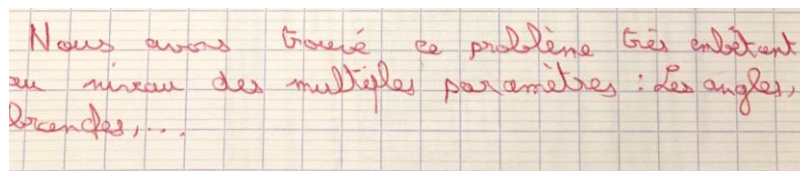 Nous avons trouvé ce problème très embêtant
au niveau des multiples paramètres : Les angles,